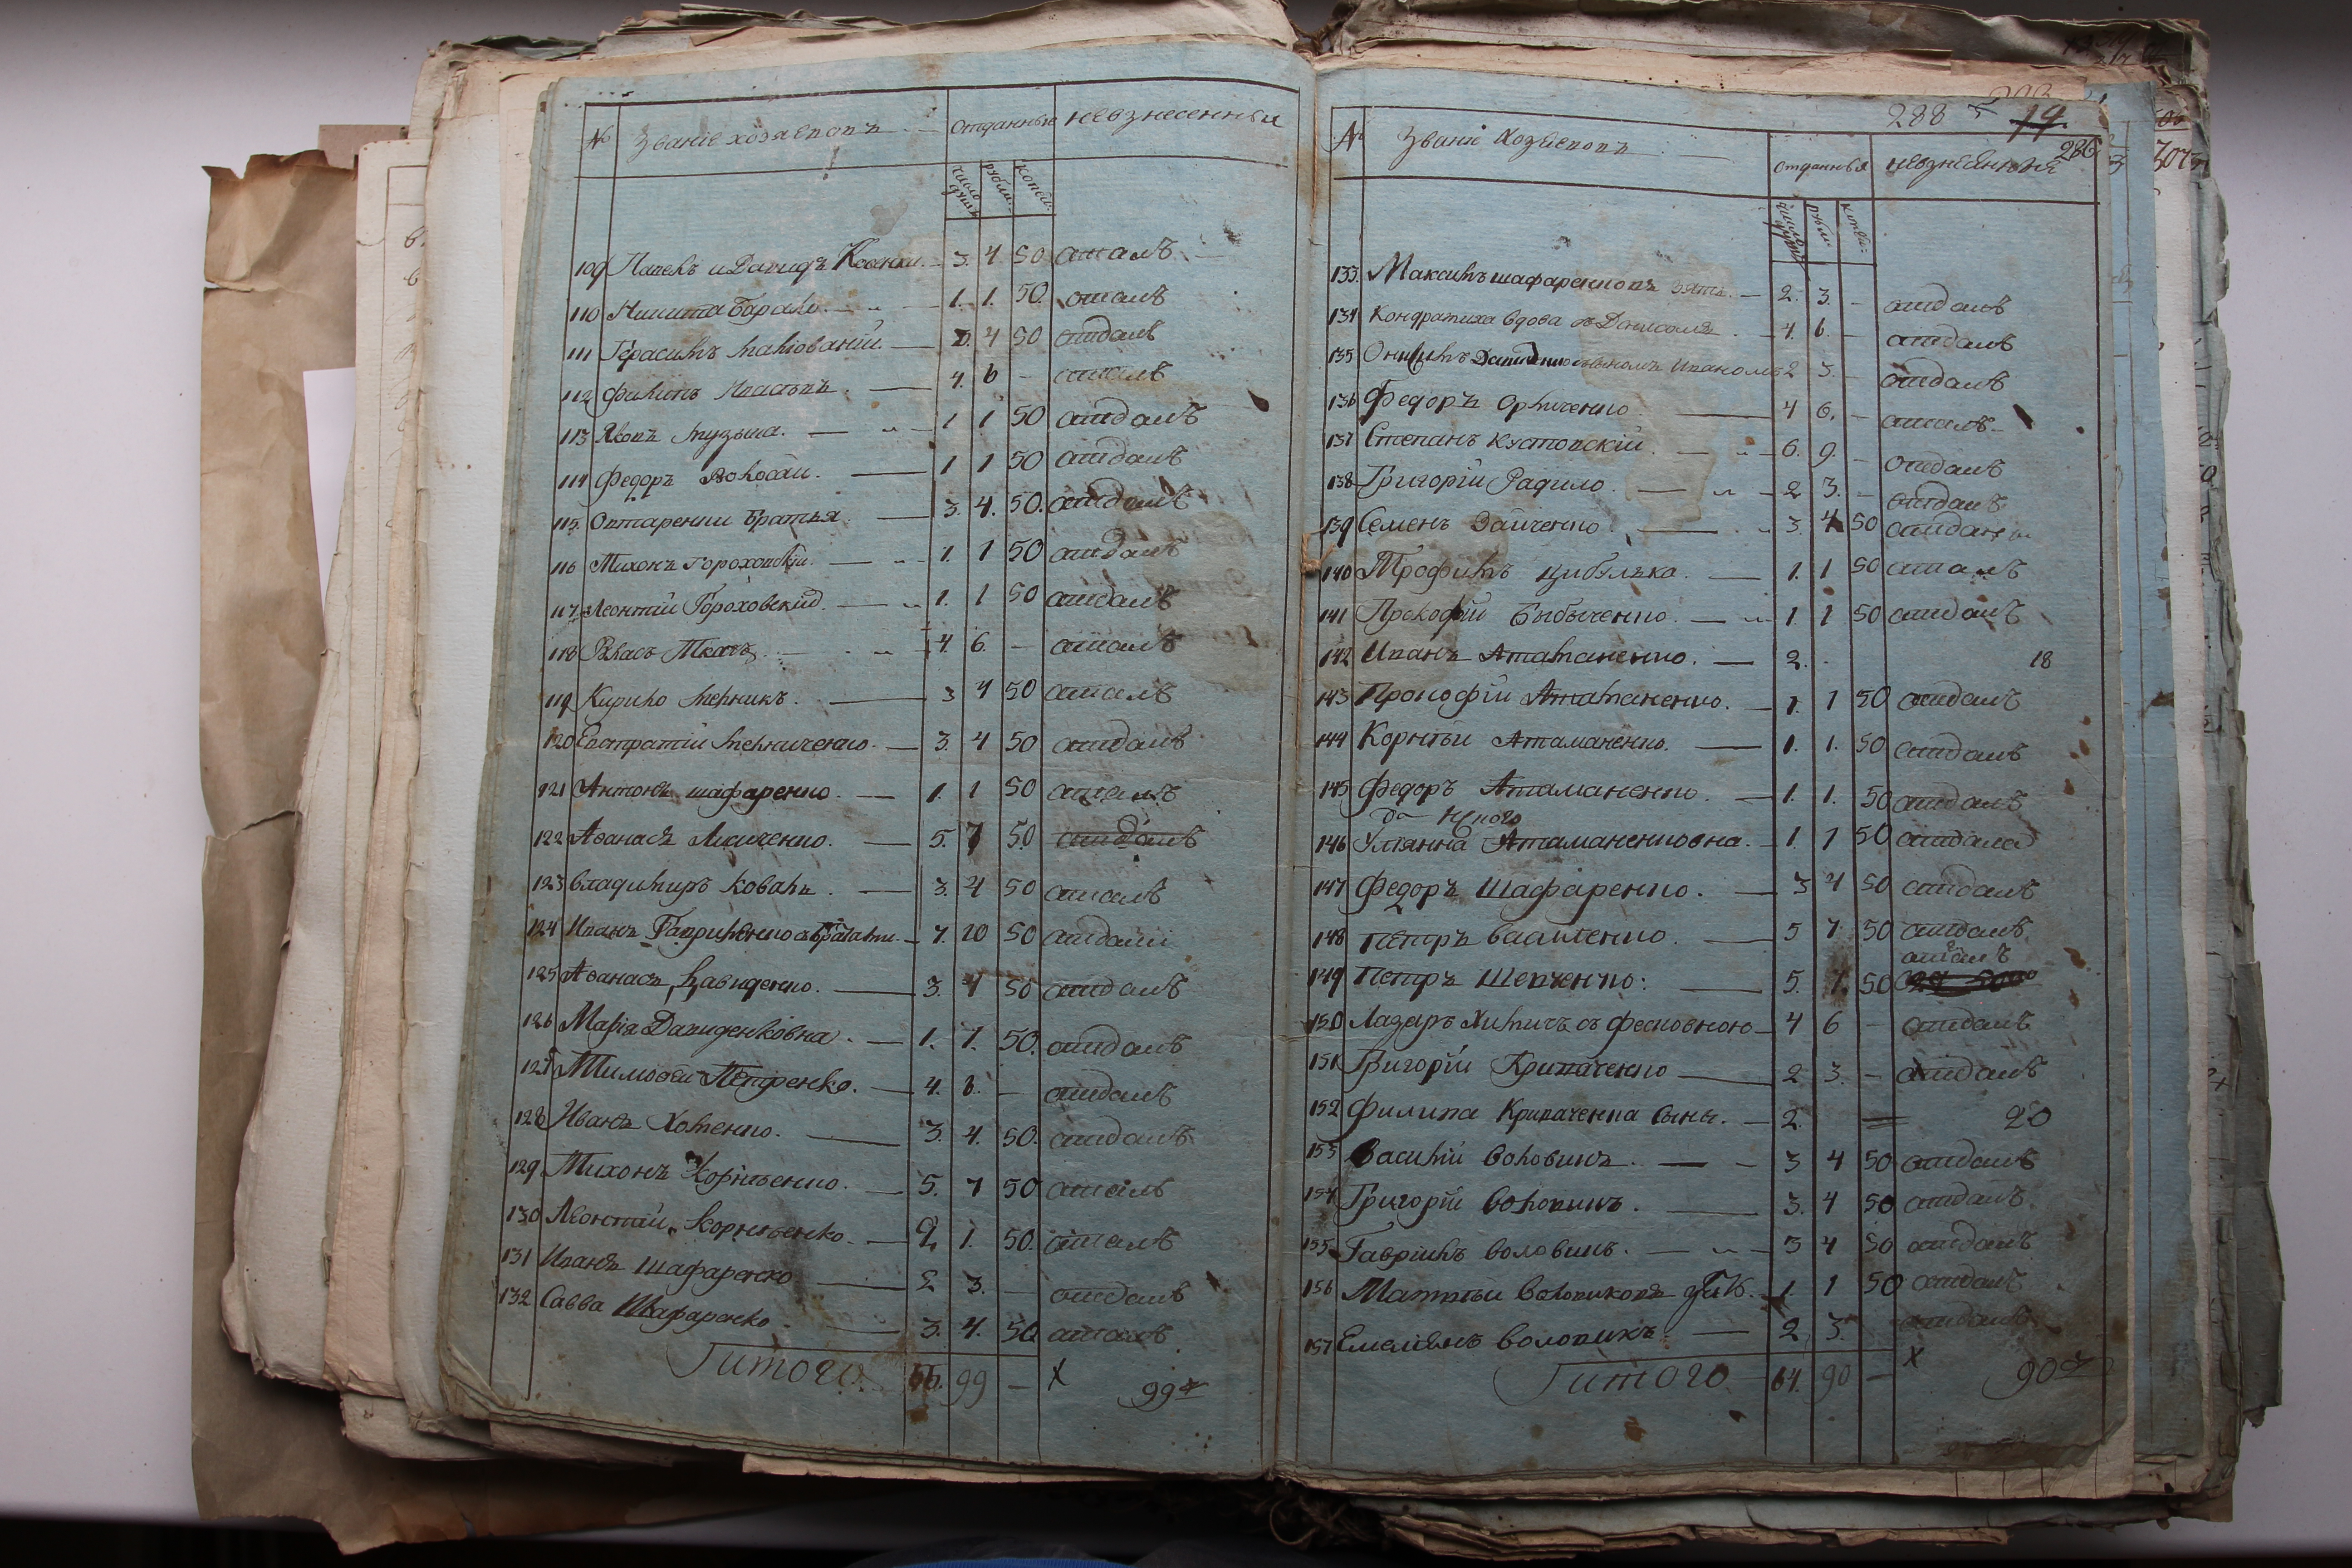 № Званіе хозяевовъ отданные невзнесенные
число душъ рубли. копѣй.
109 Павелъ и Давидъ 3. 4 50 отдалъ
110 Никита Барань. 1. 1. 50. отдалъ
111 Герасимъ 4 50 отдалъ
112 Филипъ 4. 6 — отдалъ
113 Яковъ Музыка. 1 1 50 отдалъ
114 Федоръ Волосам. 1 1 50 отдалъ
115. Овтаренки братья. 3. 4. 50. отдалъ
116 Тихонъ Гороховскій. 1. 1 50 отдалъ
117 Леонтій Гороховский. 1. 1 50 отдалъ
118 Власъ Ткачъ. 4. 6. — отдалъ
119 Кирило Мельникъ. 3 4 50 отдалъ
120 Евстратій Мельниченко. 3. 4 50 отдалъ
121 Антонъ шафаренко. 1. 1 50 отдалъ
122 Аѳанасъ 5. 7 50 отдалъ
123 Владимиръ Коваль. 3. 4 50 отдалъ
124 Иванъ Гавриленко зъ братами. 7. 10 50 отдали
125 Аѳанасъ Давиденко. 3. 4 50 отдалъ
126 Марія Давиденковна. 1. 1. 50. отдалъ
127 Тимоѳей Петренко. 4. 6. — отдалъ
128 Иванъ Хоменко. 3. 4. 50. отдалъ
129 Тихонъ Корнѣенко. 5. 7 50 отдалъ
130 Леонтій Корнѣенко. 1. 50. отдалъ
131 Иванъ Шафаренко 2 3. — отдалъ
132 Савва Шафаренко. 3. 4. 50 отдалъ
Гитого 66. 99 — х 99
288 19.
286
№ Званіе Хозяевовъ отданныя невзнесенныя
число душъ рубли копѣй.
133. Максимъ шафаренковъ зять. 2. 3. — отдалъ
134 Кондратиха вдова 4. 6. — отдалъ
135 Онисимъ Давиденко сыномъ Иваномъ 2 3. — отдалъ
136 Федоръ 4 6. — отдалъ
137 Степанъ Кустовскій. 6. 9. — отдалъ
138 Григорій Радило. 2 3. — отдалъ
139 Семенъ Заиченко. 3. 4 50 отдалъ
140 Трофимъ Цибулька. 1. 1 50 отдалъ
141 Прокофій Бибиченко. 1 1 50 отдалъ
142 Иванъ Атаманенко. 2. 18
143 Прокофій Атаманенко. 1. 1 50 отдалъ
144 Корнѣй Атаманенко. 1. 1. 50 отдалъ
145 Федоръ Атаманенко. 1. 1. 50 отдалъ
146 Улянна Атаманенковна. 1. 1 50 отдала
147 Федоръ Шафаренко. 3 4 50 отдалъ
148 Петръ Василенко. 5 7. 50 отдалъ
отдалъ
149 Петръ Шевченко: 5. 7. 50
150 Лазаръ съ фесковною 4 6 — отдалъ
151 Григорій Криваченко 2 3. — отдалъ
152 Филипа Криваченка сыны. 2. 20
153 Василій Воловикъ. 3 4 50 отдалъ
154 Григорій Воловикъ. 3. 4 50 отдалъ
155 Гавриилъ Воловикъ. 3 4 50 отдалъ
156 Матвѣй Воловиковъ 1. 1 50 отдалъ
157 Емелянъ Воловикъ. 2 3. отдалъ
Гитого 64. 90 — х 90